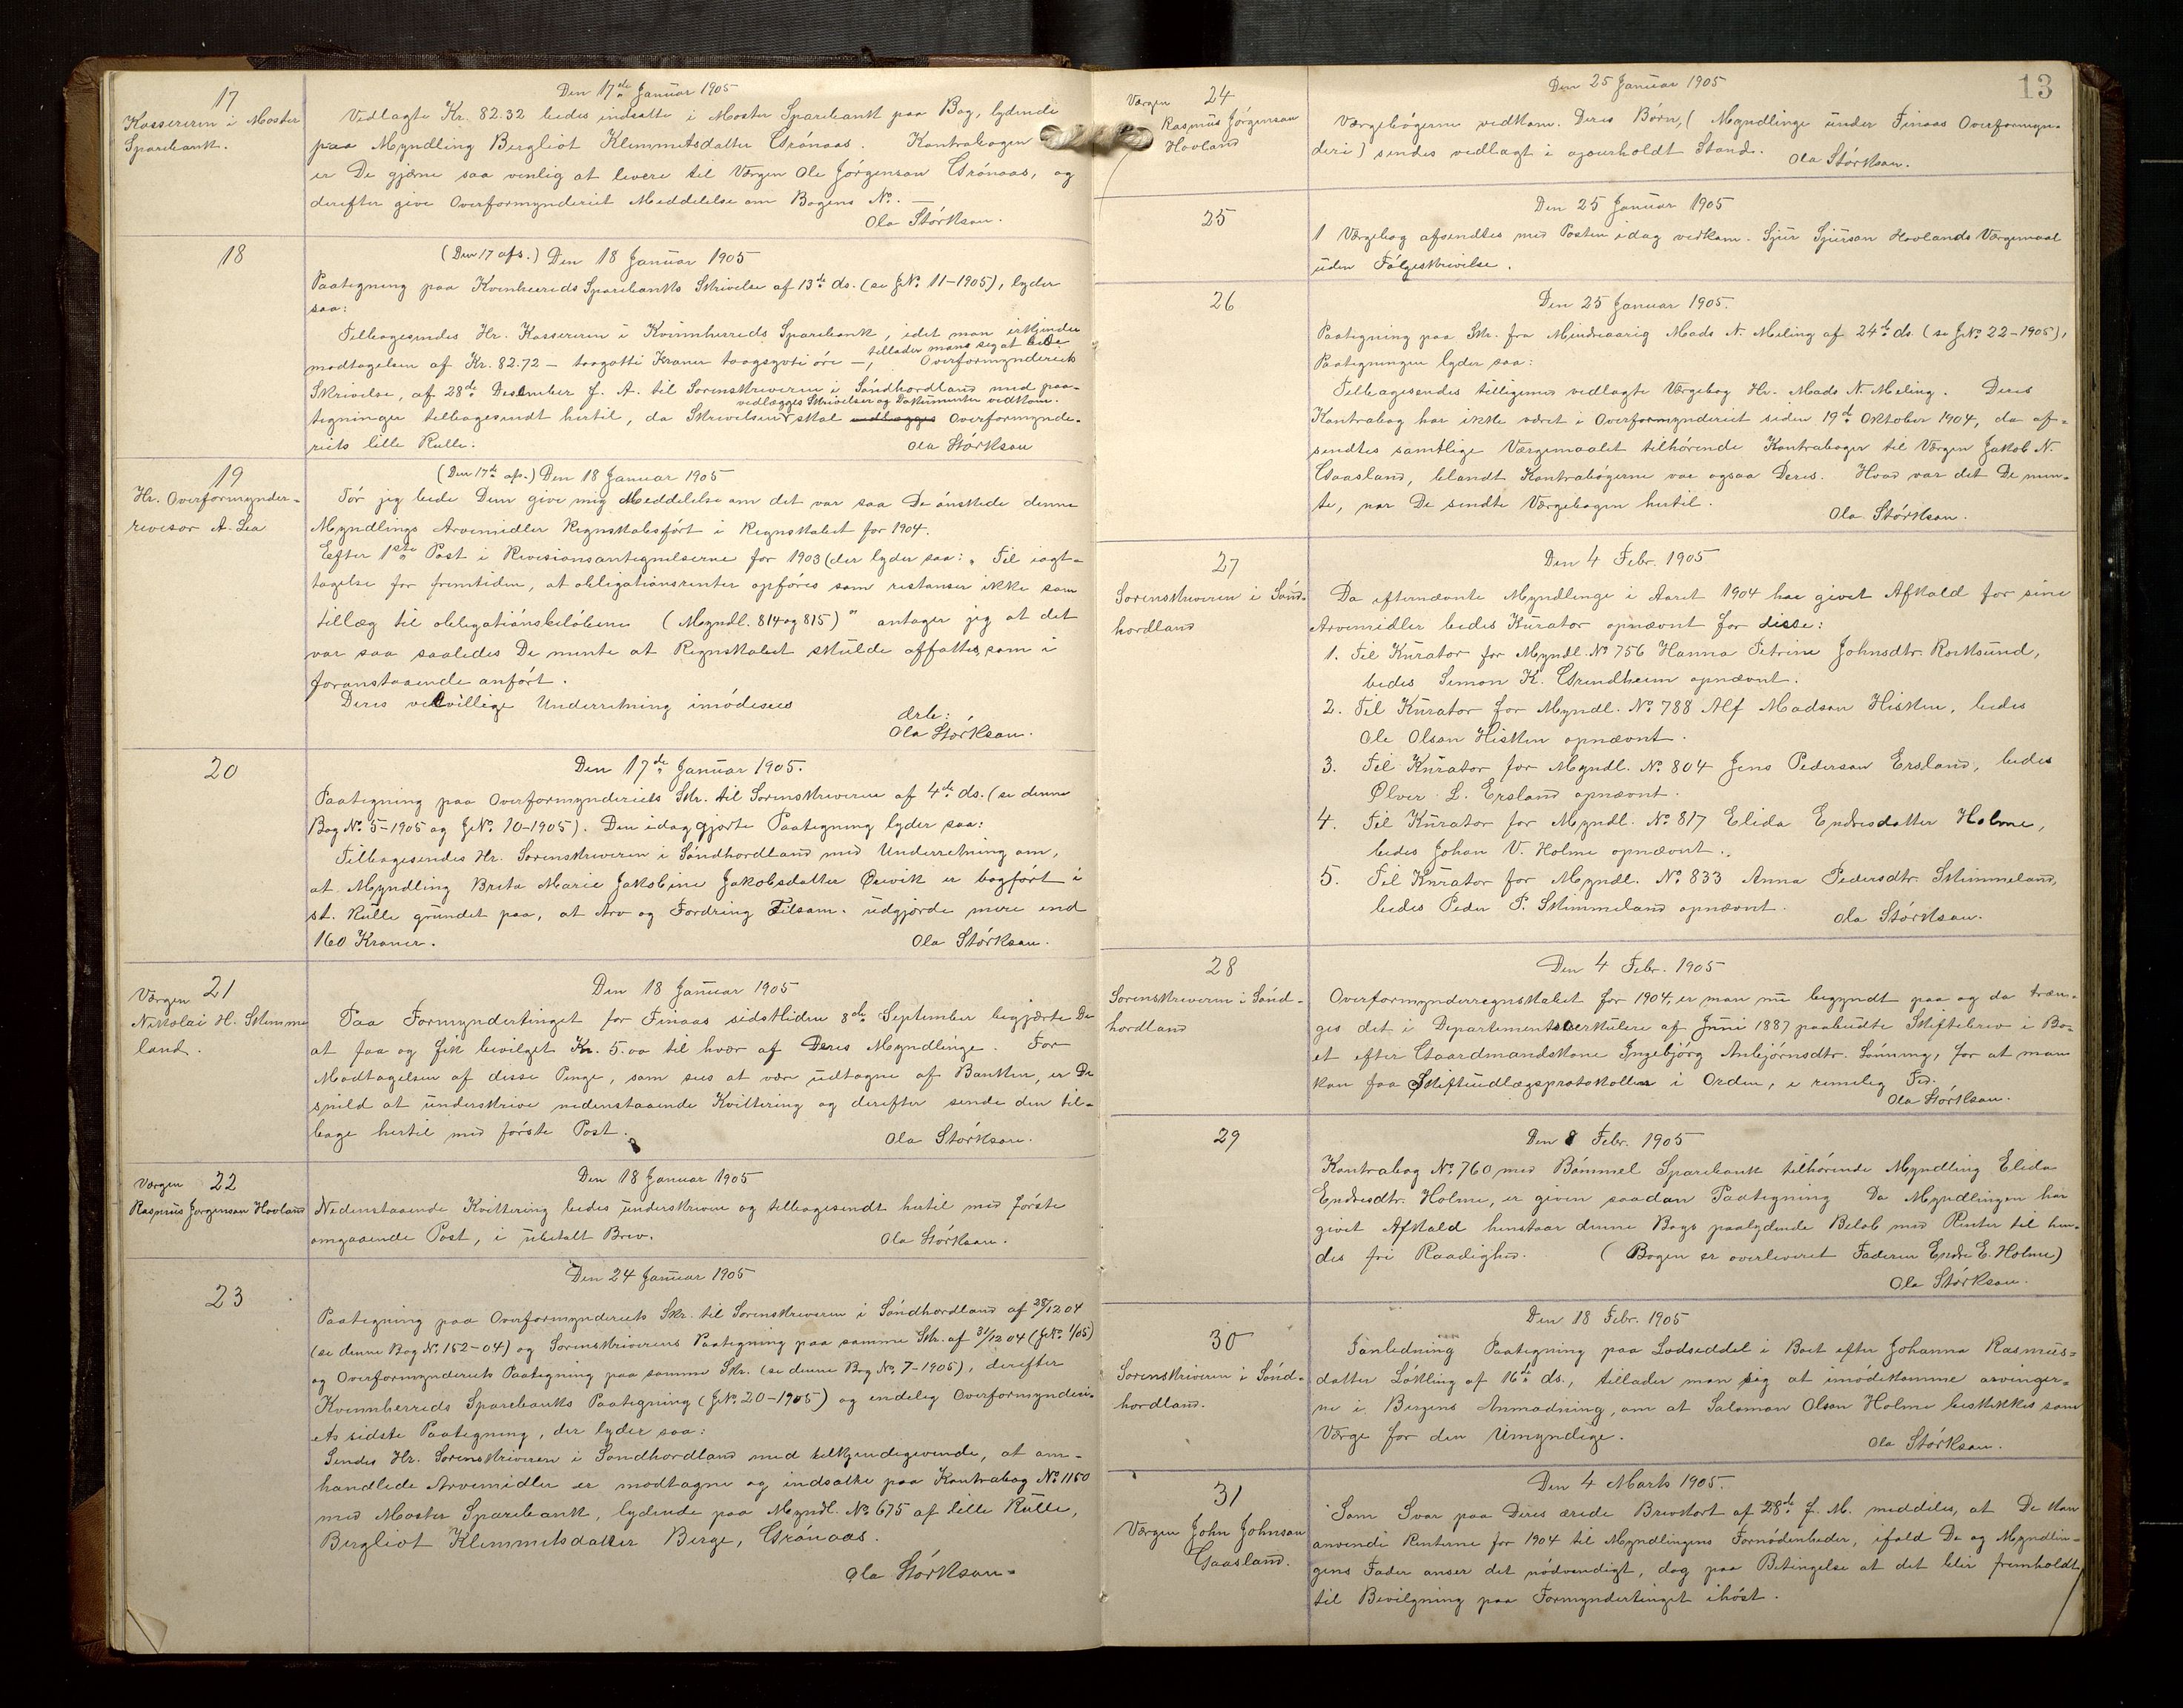 17
Kassereren i Moster
Sparebank.
Den 17de Januar 1905
Vedlagte Kr. 82.32 bedes indsatte i Moster Sparebank paa Bog, lydende
paa Myndling Bergliot Klemmetsdatter Grönaas. Kontrabogen
er De gjærne saa venlig at levere til Værgen Ole Jörgenson Grönaas, og
derefter give Overformynderiet Meddelelse om Bogens No. —
Ola Störkson.
18
(Den 17 afs.) Den 18 Januar 1905
Paategning paa Kvinherreds Sparebanks Skrivelse af 13de ds. (se JNo. 11-1905), lyder
saa:
Tilbagesendes Hr. Kassereren i Kvinnherreds Sparebank, idet man erkjender
modtagelsen af Kr. 82.72 – toogotti Kroner toogsyvti öre –, tillader mans seg at bede Overformynderiets
Skrivelse, af 28de December f. A. til Sorenskriveren i Söndhordland med paa-
tegninger tilbagesendt hertil, da Skrivelsen skal vedlægges Skrivelser og Dokumenter vedkom. Overformynde-
riets lille Rulle.
Ola Störkson
19
Hr. Overformynder-
revisor A. Lea
(Den 17de afs.) Den 18 Januar 1905
Tör jeg bede Dem give mig Meddelelse om det var saa De önskede denne
Myndlings Arvemidler Regnskabsfört i Regnskabet for 1904.
Efter 1ste Post i Revisionsantegnelserne for 1903 (der lyder saa: „Til iagt-
tagelse for fremtiden, at obligationsrenter opföres som restanser ikke som
tillæg til obligationsbelöbene (Myndl. 814 og 815)" antager jeg at det
var saa saaledes De mente at Regnskabet skulde affattes, som i
foranstaaende anfört.
Deres velvillige Underretning imödesees
ærb:
Ola Störkson.
20
Den 17de Januar 1905.
Paategning paa Overformynderiets Skr. til Sorenskriveren af 4de ds. (se denne
Bog No. 5-1905 og JNo. 10-1905). Den idag gjorte Paategning lyder saa:
Tilbagesendes Hr. Sorenskriveren i Söndhordland med Underretning om,
at Myndling Brita Marie Jakobine Jakobsdatter Ørevik er bogfört i
st. Rulle grundet paa, at Arv og Fordring Tilsam. udgjorde mere end
160 Kroner.
Ola Störkson.
21
Værgen
Nikolai H. Skimme
land.
Den 18 Januar 1905
Paa Formyndertinget for Finaas sidstliden 8de September begjærte De
at faa og fik bevilget Kr. 5.00 til hver af Deres Myndlinge. For
Modtagelsen af disse Penge, som sees at være udtagne af Banken, er De
snild at underskrive nedenstaaende Kvittering og derefter sende den til-
bage hertil med förste Post.
Ola Störkson.
22
Værgen
Rasmus Jorgenson Hovland
Den 18 Januar 1905
Nedenstaaende Kvittering bedes underskreven og tilbagesendt hertil med förste
omgaaende Post, i ubetalt Brev.
Ola Störkson.
23
Den 24 Januar 1905
Paategning paa Overformynderiets Skr. til Sorenskriveren i Söndhordland af 28/12 04
(se denne Bog No. 152-04) og Sorenskriverens Paategning paa samme Skr. af 31/12 04 (JNo. 1/05)
og Overformynderiets Paategning paa samme Skr. (se denne Bog No. 7-1905), derefter
Kvinnherreds Sparebanks Paategning (JNo. 20-1905) og endelig Overformynderi-
ets sidste Paategning, der lyder saa:
Sendes Hr. Sorenskriveren i Sondhordland med tilkjendegivende, at om-
handlede Arvemidler er modtagne og indsatte paa Kontrabog No. 1150
med Moster Sparebank, lydende paa Myndl. No. 675 af lille Rulle,
Bergliot Klemmetsdatter Berge, Grönaas.
Ola Störkson.
13
24
Værgen
Rasmus Jörgenson
Hovland
Den 25 Januar 1905
Værgebögerne vedkom. Deres Börn, (Myndlinge under Finaas Overformyn-
deri) sendes vedlagt i ajourholdt Stand.
Ola Störkson.
25
Den 25 Januar 1905
1 Værgebog afsendtes med Posten idag vedkom. Sjur Sjurson Hovlands Værgemaal
uden Fölgeskrivelse.
26
Den 25 Januar 1905.
Paategning paa Skr. fra Mindreaarig Mads N. Meling af 24de ds. (se JNo. 22-1905),
Paategningen lyder saa:
Tilbagesendes tilligemed vedlagte Værgebog Hr. Mads N. Meling. Deres
Kontrabog har ikke været i Overformynderiet siden 19de Oktober 1904, da af-
sendtes samtlige Værgemaalet tilhörende Kontraboger til Værgen Jakob N.
Gaasland, blandt Kontrabögerne var ogsaa Deres. Hvad var det De men-
te, nar De sendte Værgebogen hertil.
Ola Störkson.
27
Sorenskriveren i Sönd-
hordland
Den 4 Febr. 1905
Da efternævnte Myndlinge i Aaret 1904 har givet Afkald for sine
Arvemidler bedes Kurator opnævnt for disse:
1. Til Kurator for Myndl. No. 756 Hanna Petrine Johnsdtr. Roksund,
bedes Simon K. Grindheim opnævnt.
2. Til Kurator for Myndl. No. 788 Alf Madson Hisken, bedes
Ole Olson Hisken opnævnt.
3. Til Kurator for Myndl. No. 804 Jens Pederson Ersland, bedes
Ølver L. Ersland opnævnt.
4. Til Kurator for Myndl. No. 817 Elida Endresdatter Holme,
bedes Johan V. Holme opnævnt.
5. Til Kurator for Myndl. No. 833 Anna Pedersdtr. Skimmeland,
bedes Peder P. Skimmeland opnævnt.
Ola Störkson.
28
Sorenskriveren i Sönd-
hordland
Den 4 Febr. 1905
Overformynderregnskabet for 1904, er man nu begyndt paa og da træn-
ges det i Departementscerkulere af Juni 1887 paabudte Skiftebrev i Bo-
et efter Gaardmandskone Ingebjörg Anbjörnsdtr. Lönning, for at man
kan faa Skifteudlægsprotokollen i Orden, i rimelig Tid.
Ola Störkson.
29
Den 8 Febr. 1905
Kontrabog No. 760 med Bömmel Sparebank tilhörende Myndling Elida
Endresdtr. Holme, er given saadan Paategning Da Myndlingen har
givet Afkald henstaar denne Bogs paalydende Belöb med Renter til hen-
des fri Raadighed. (Bogen er overleveret Faderen Endre E. Holme)
Ola Störkson.
30
Sorenskriveren i Sönd-
hordland.
Den 18 Febr. 1905
Ianledning Paategning paa Lodseddel i Boet efter Johanna Rasmus-
datter Lökling af 16de ds., tillader man sig at imödekomme arvinger-
ne i Bergens Anmodning, om at Salomon Olson Holme beskikkes som
Værge for den Umyndige.
Ola Störkson.
31
Værgen John Johnson
Gaasland.
Den 4 Marts 1905.
Som Svar paa Deres ærede Brevkort af 28de f. M. meddeles, at De kan
anvende Renterne for 1904 til Myndlingens Fornödenheder, ifald De og Myndlin-
gens Fader anser det nödvendigt, dog paa Betingelse at det blir fremholdt
til Bevilgning paa Formyndertinget ihöst.